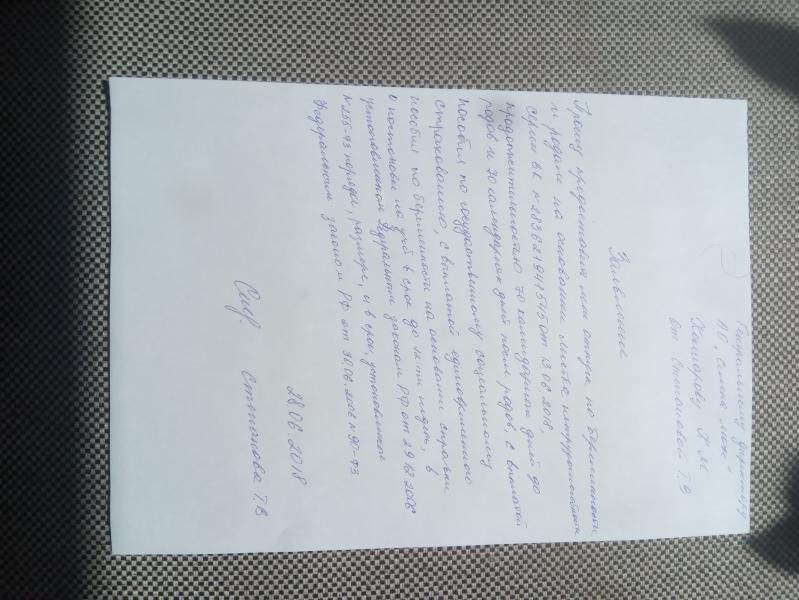 Генеральному директору
АО "
от Степановой Т.В
Заявление
Прошу предоставить мне отпуск по беременности
и родам на основании листка нетрудоспособности
серии ВК N 283621941545 от 13 06 2018,
продолжительностью 70 календарных дней до
родов и 70 календарных дней после родов, с выплатой
пособия по государственному социальному
страхованию, с выплатой единовременного
пособия по беременности на основании справки
о постановке на учёт в срок до 12-ти недель, в
установленном Федеральным законом РФ от 29 12 2006
N 255-ФЗ порядке, размере, и в срок установленном
Федеральным законом РФ от 30 06 2006 N 90-ФЗ
28 06 2018
Степанова Т.В